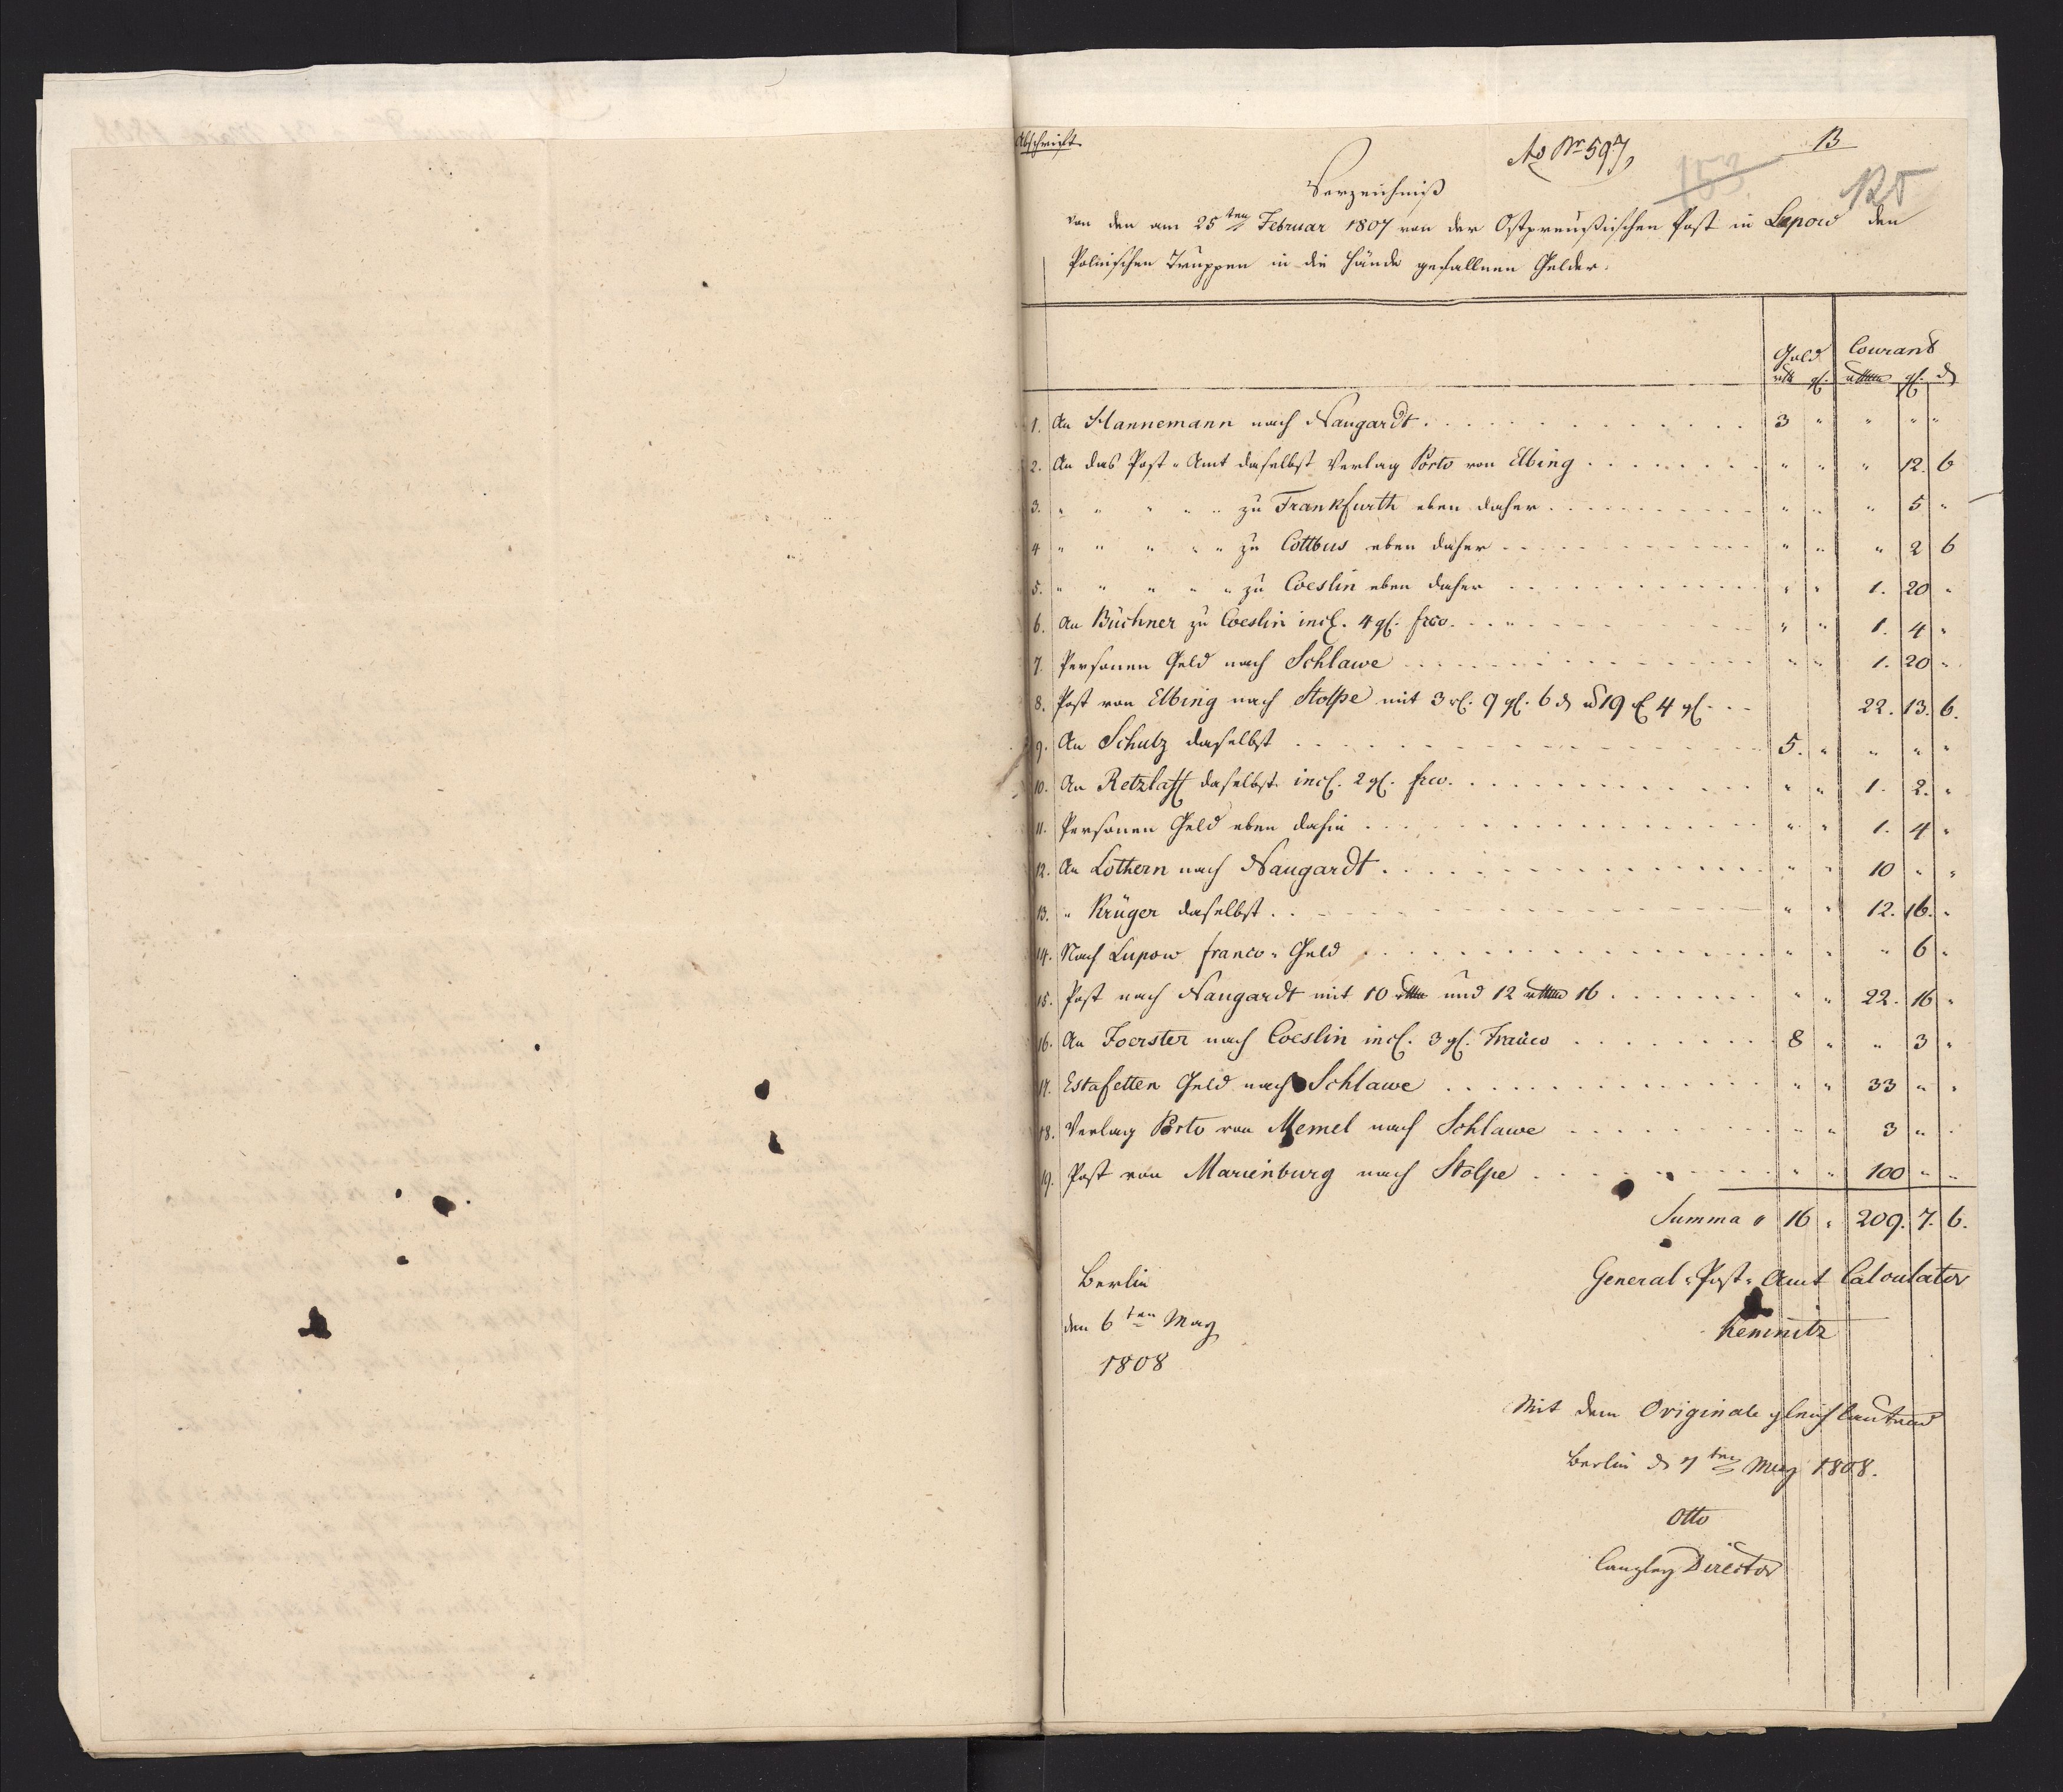 Abschrift.
Ad Nr 597,
B
153
125
Verzeichniß
von den am 25ten Februar 1807 von der Ostpreußischen Post in Lupow den
Polnischen Truppen in die Hände gefallenen Gelder.
Gold Courant
rtlr gl. rtlr gl. d
1. An Hannemann nach Naugardt. 3 " " " "
2. An das Post-Amt daselbst Verlag Porto von Elbing " " " 12. 6
3. " " " " " zu Frankfurth eben daher " " " 5 "
4 " " " " " zu Cottbus eben daher " " " 2 6
5. " " " " " zu Coeslin eben daher " " 1. 20 "
6. An Büchner zu Coeslin incl. 4 gl. frco. " " 1. 4 "
7. Personen Geld nach Schlawe " " 1. 20 "
8. Post von Elbing nach Stolpe mit 3 rl. 9 gl. 6 d u 19 rl 4 gl. 22. 13. 6.
9. An Schulz daselbst 5. " " " "
10. An Retzlaff daselbst incl. 2 gl. frco. " " 1. 2. "
11. Personen Geld eben dahin " " 1. 4 "
12. An Lothern nach Naugardt. " " 10 " "
13. " Krüger daselbst. " " 12. 16. "
14. Nach Lupow franco-Geld " " " 6 "
15. Post nach Naugardt mit 10 rtlr und 12 rtlr 16 " " 22. 16 "
16. An Foerster nach Coeslin incl. 3 gl. Franco 8 " " 3 "
17. Estafetten Geld nach Schlawe " " 33 " "
18. Verlag Porto von Memel nach Schlawe " " 3 " "
19. Post von Marienburg nach Stolpe " " 100 " "
Summa " 16 " 209. 7. 6.
Berlin
General-Post-Amt Calculator
den 6ten May
Kemnitz
1808
Mit dem Originale gleichlautend
Berlin d 7ten May 1808.
Otto
Canzley Director